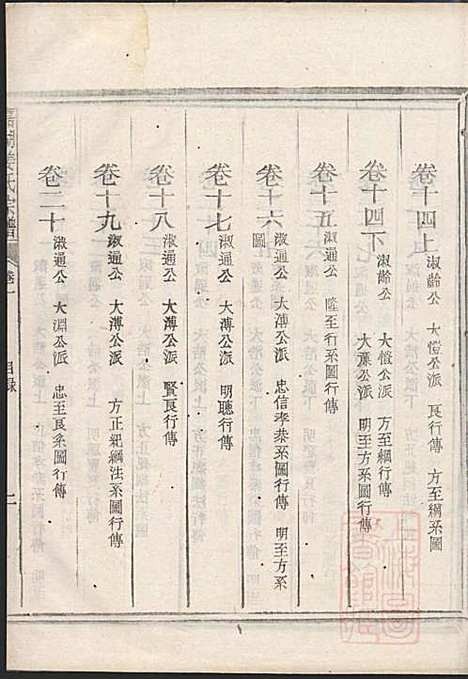 卷十四上
淑齡公 大愷公派 良行傳 方至綱系圖
卷十四下
淑齡公 大愷公派 方至綱行傳
大濂公派 系圖行傳
卷十五
淑通公 隆至行系圖行傳
卷十六
淑通公 大溥公派 忠信孝恭系圖行傳 明至方系圖
卷十七
淑通公 大溥公派 明聰行傳
卷十八
淑通公 大溥公派 賢良行傳
卷十九
淑通公 大溥公派 方正紀綱法系圖行傳
卷二十
淑通公 大淵公派 忠至良系圖行傳
氏宗譜 卷一 目錄 二